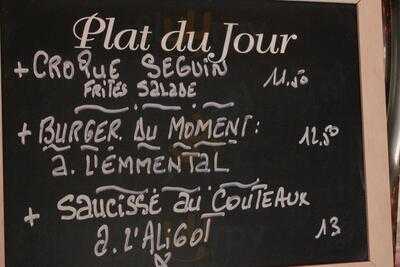 Plat du Jour
+ CROQUE SEGUIN 11.50
FRITES SALADE
+ BURGER DU MOMENT : 12.50
a. L'EMMENTAL
+ SAUCISSE AU COUTEAUX
a. L'ALIGOT 13